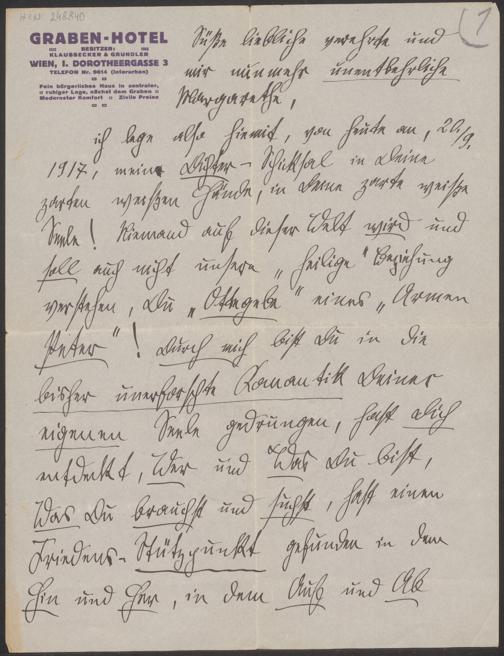 HIN 248840
1
GRABEN-HOTEL
BESITZER:
KLAUSSECKER & GRUNDLER
WIEN, I. DOROTHEERGASSE 3
TELEFON Nr. 9614 (interurban)
Fein bürgerliches Haus in zentraler,
ruhiger Lage, nächst dem Graben
Modernster Komfort Zivile Preise
Süße liebliche verehrte und
mir nunmehr unentbehrliche
Margarethe,
ich lege also hiemit, von heute an, 20/9.
1917, mein Dichter-Schicksal in Deine
zarten weißen Hände, in Deine zarte weiße
Seele! Niemand auf dieser Welt wird und
soll auch nicht unsere „heilige" Beziehung
verstehen, Du „Ottegebe" eines „Armen
Peter"! Durch mich bist Du in die
bisher unerforschte Romantik Deiner
eigenen Seele gedrungen, hast Dich
entdeckt, Wer und Was Du bist,
Was Du brauchst und suchst, hast einen
Friedens-Stützpunkt gefunden in dem
Hin und Her, in dem Auf und Ab